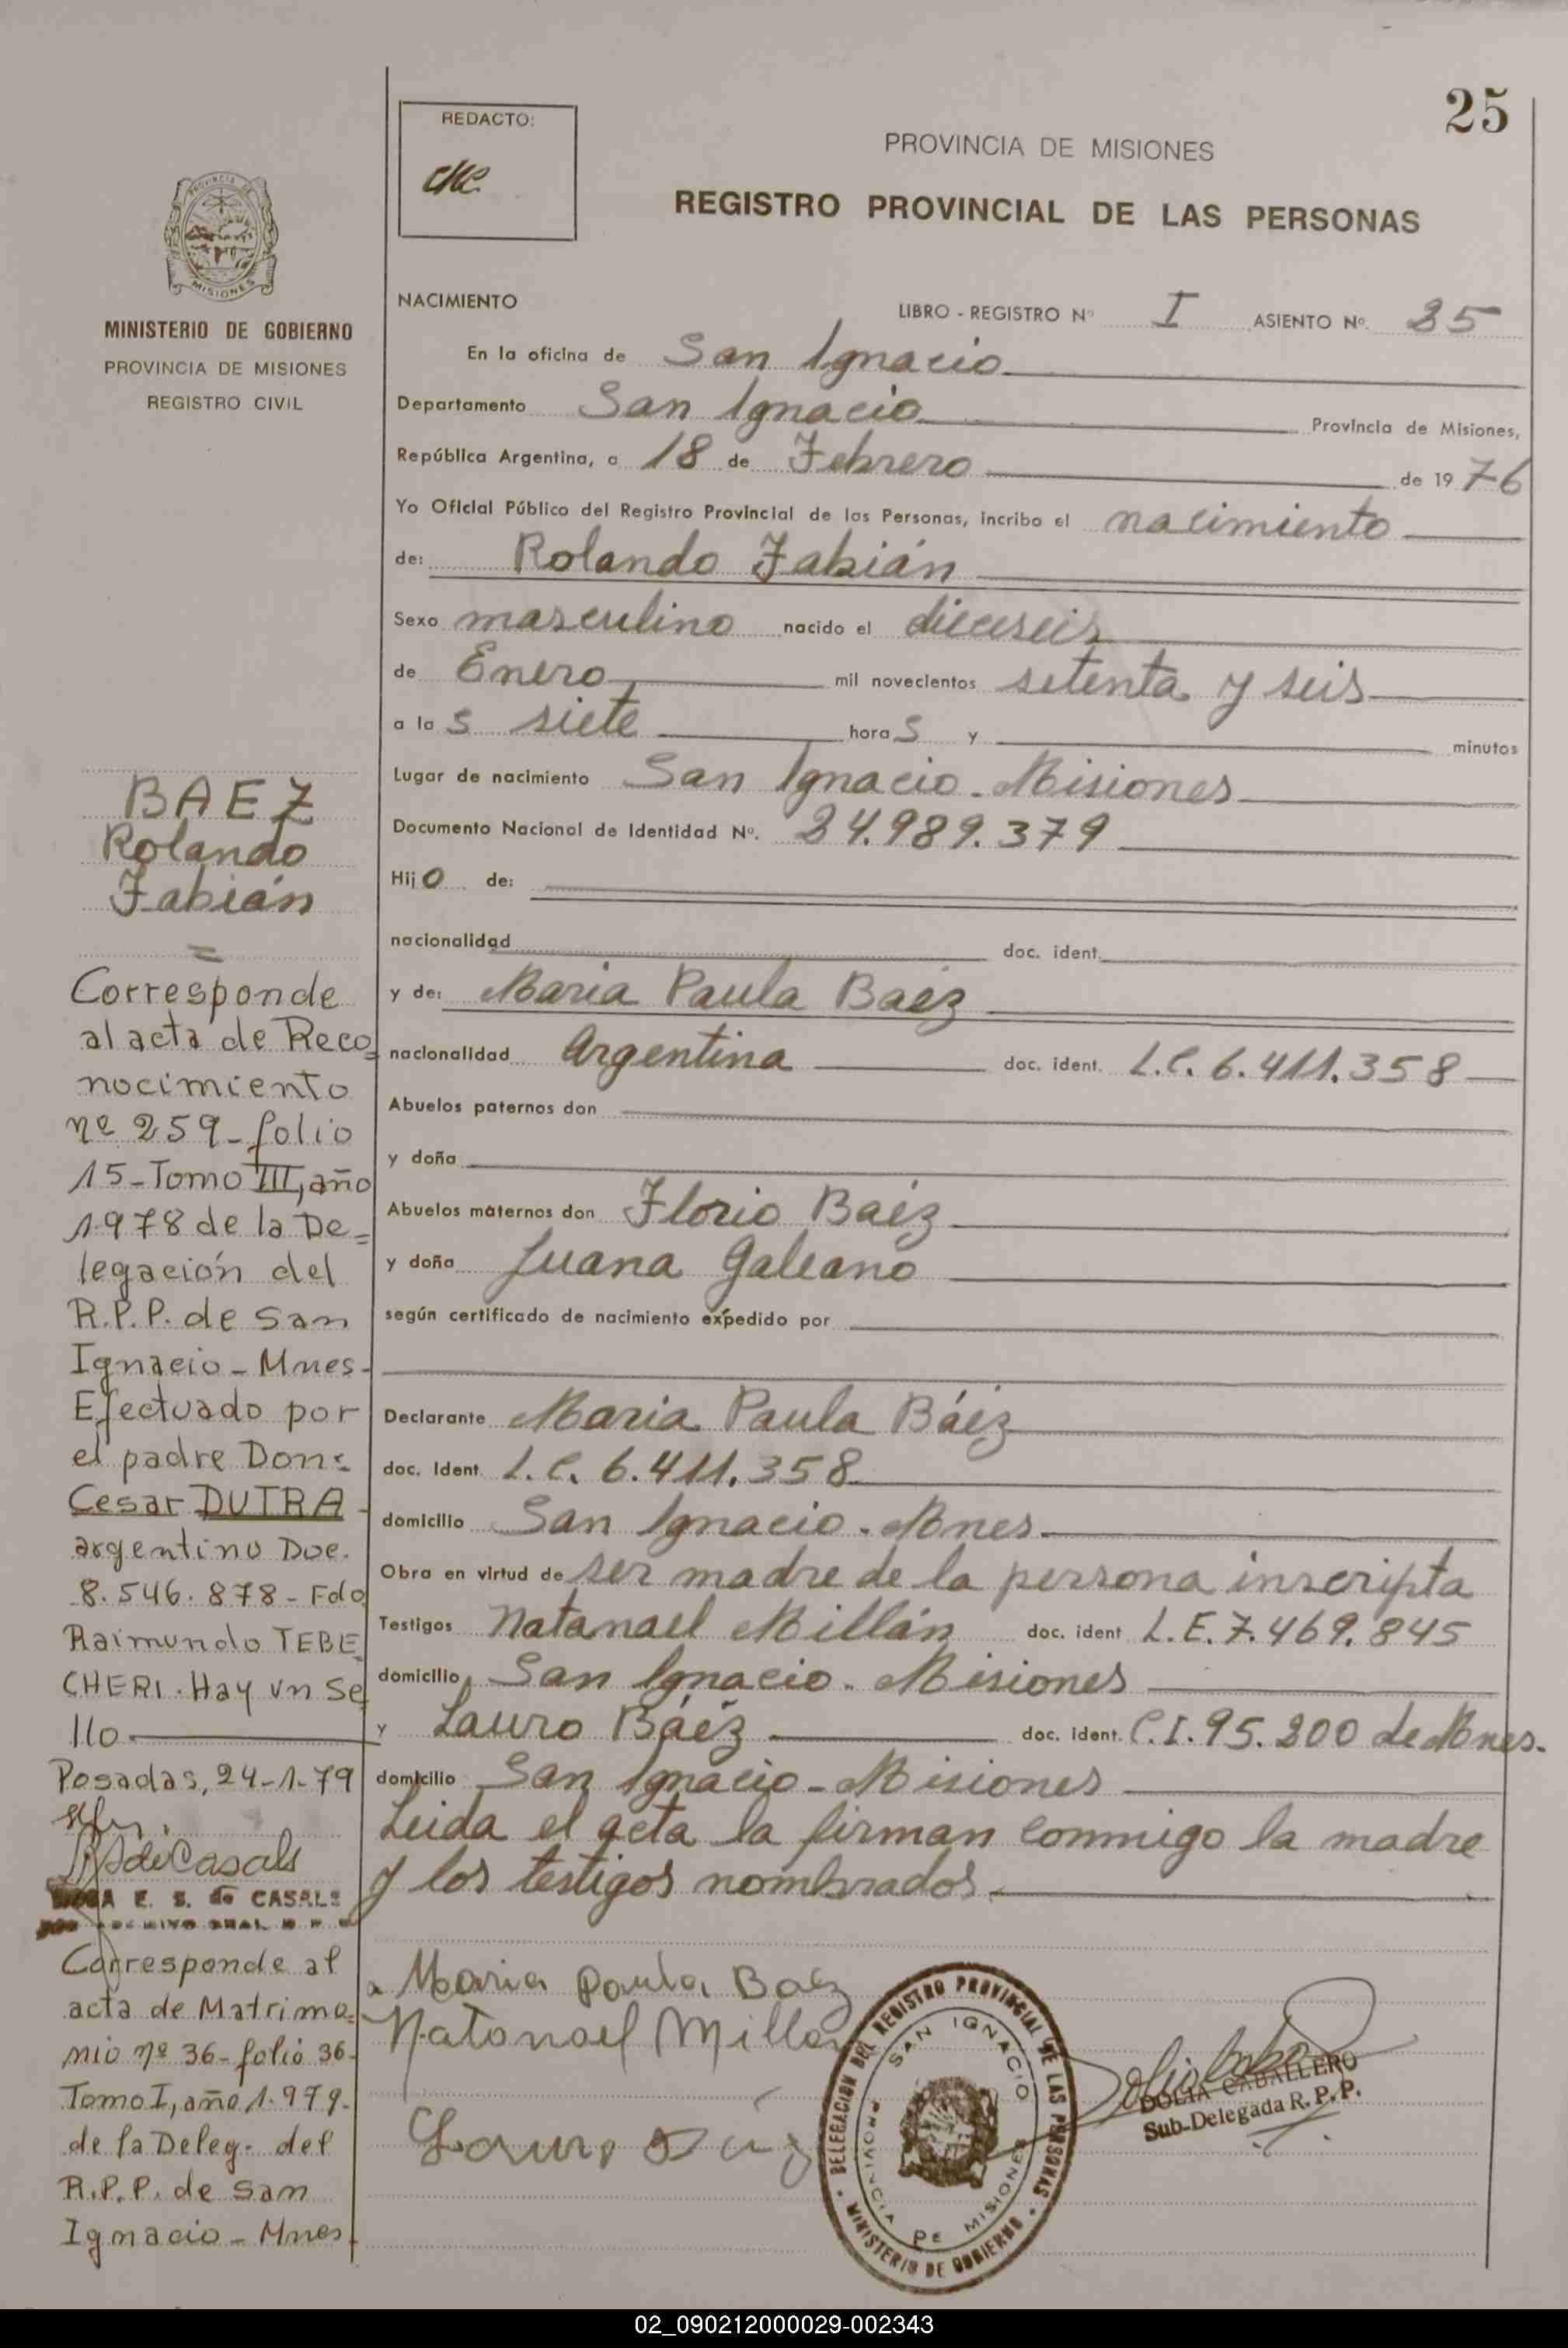 25
REDACTO:
PROVINCIA DE MISIONES
REGISTRO PROVINCIAL DE LAS PERSONAS
PROVINCIA DE
MISIONES
MINISTERIO DE GOBIERNO
PROVINCIA DE MISIONES
REGISTRO CIVIL
NACIMIENTO LIBRO - REGISTRO Nº I ASIENTO Nº. 25
En la oficina de San Ignacio
Departamento San Ignacio Provincia de Misiones,
República Argentina, a 18 de Febrero de 1976
Yo Oficial Público del Registro Provincial de las Personas, incribo el nacimiento
de: Rolando Fabián
Sexo masculino nacido el dieciseis
de Enero mil novecientos setenta y seis
a las siete horas y minutos
Lugar de nacimiento San Ignacio - Misiones
Documento Nacional de Identidad Nº. 24.989.379
Hijo de:
nacionalidad doc. ident.
y de: Maria Paula Baéz
nacionalidad Argentina doc. ident. L.C. 6.411.358
Abuelos paternos don
y doña
Abuelos maternos don Florio Baéz
y doña Juana Galeano
según certificado de nacimiento expedido por
Declarante Maria Paula Báéz
doc. Ident. L.C. 6.411.358
domicilio San Ignacio - Mnes.
Obra en virtud de ser madre de la persona inscripta
Testigos Natanael Millán doc. ident L.E. 7.469.845
domicilio San Ignacio - Misiones
y Lauro Báéz doc. ident. C.I. 95.200 de Mnes.
domicilio San Ignacio - Misiones
Leida el acta la firman conmigo la madre
y los testigos nombrados.
Maria Paula Baéz
Natanael Millan
Lauro
DELEGACION DEL REGISTRO PROVINCIAL DE LAS PERSONAS
MINISTERIO DE GOBIERNO
SAN IGNACIO
PROVINCIA DE MISIONES
DOLIA CABALLERO
Sub-Delegada R. P. P.
BAEZ
Rolando
Fabián
=
Corresponde
al acta de Reco=
nocimiento
nº 259 - folio
15 - Tomo III, año
1.978 de la De=
legación del
R.P.P. de San
Ignacio - Mnes -
Efectuado por
el padre Don:
Cesar DUTRA -
argentino Doc.
8.546.878 - Fdo
Raimundo TEBE
CHERI. Hay un Se
llo
Posadas, 24-1-79
E. S. de CASALS
Corresponde al
acta de Matrimo=
nio nº 36 - folio 36 -
Tomo I, año 1.979 -
de la Deleg. del
R.P.P. de San
Ignacio - Mnes.
02_090212000029-002343